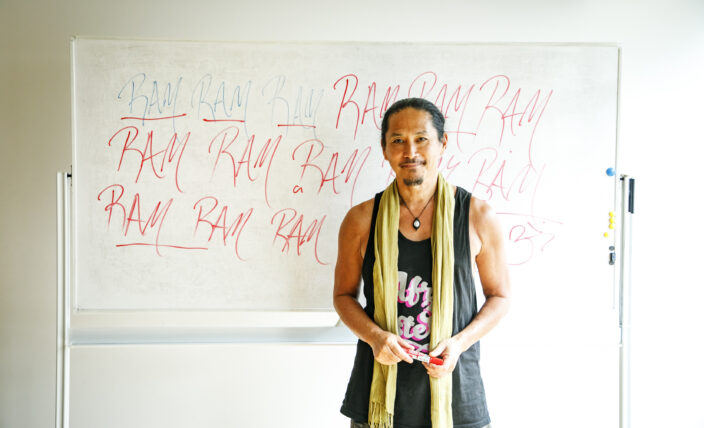 RAM RAM RAM RAM RAM RAM
RAM RAM RAM RAM
a
RAM RAM RAM